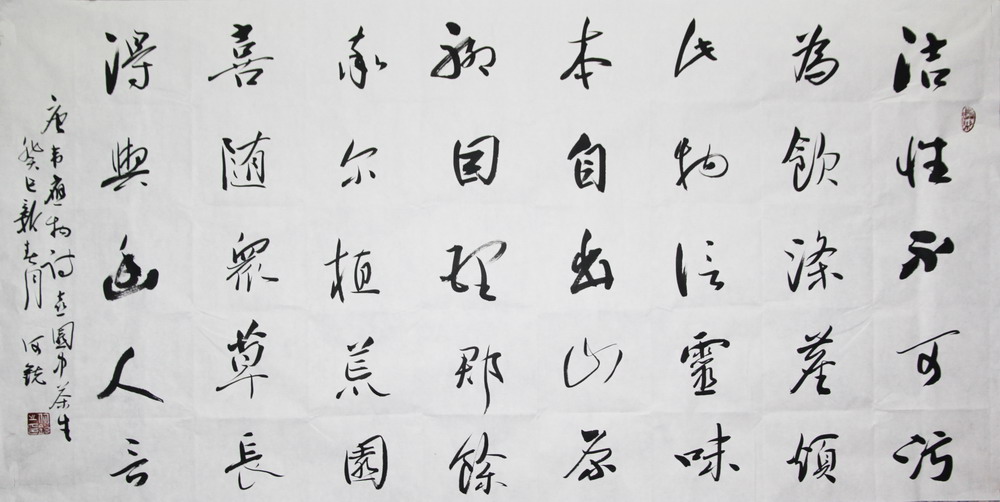 洁性不可污
為飲滌塵煩
此物信靈味
本自出山原
聊因理郡餘
率尔植荒園
喜随眾草長
得與幽人言
唐韦應物诗喜園中茶生
癸巳新春月